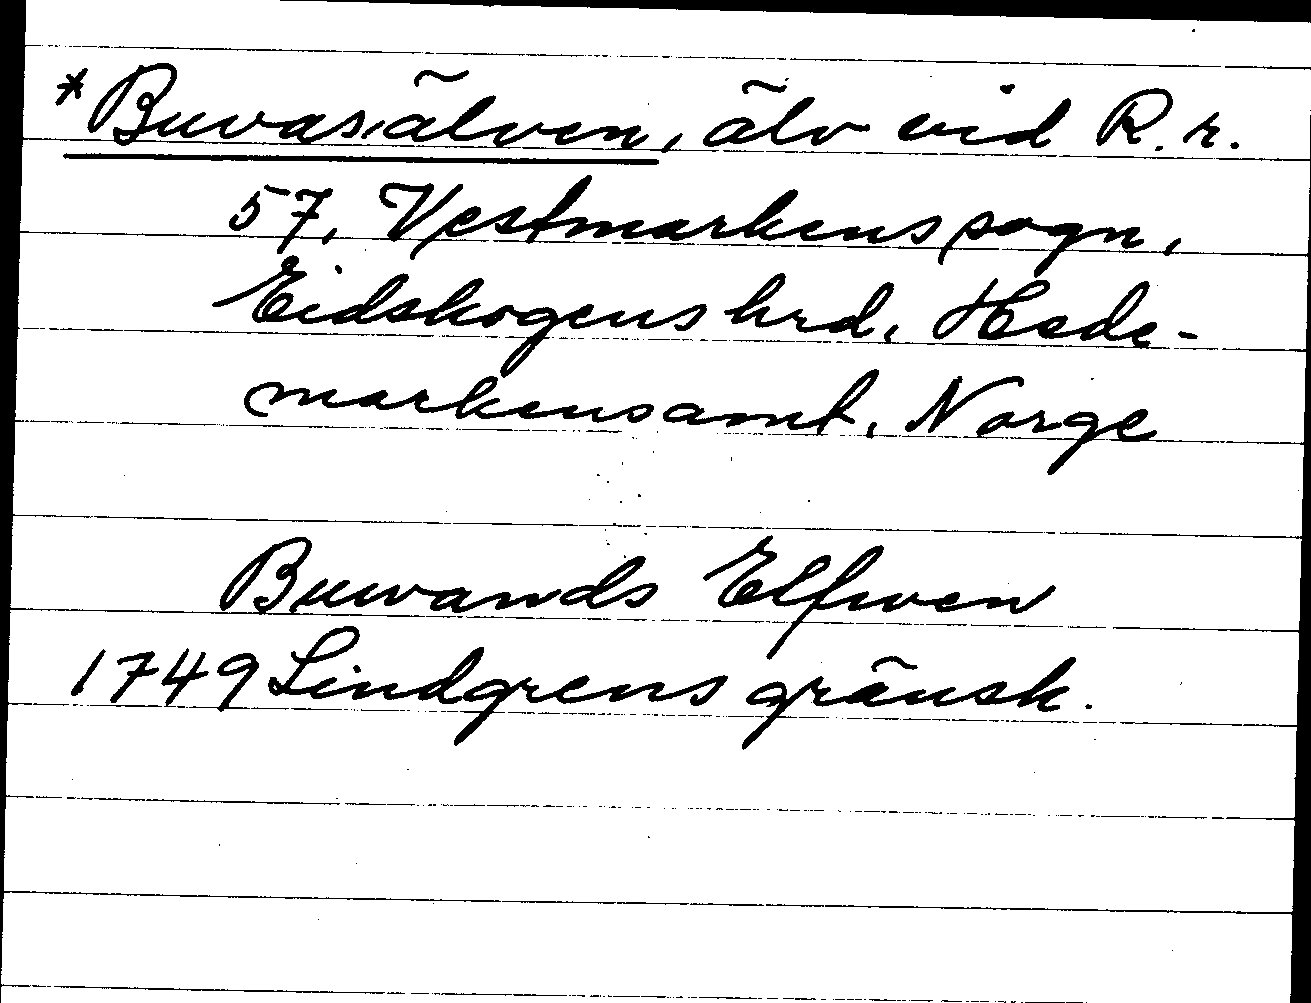 *Buvasälven, älv vid R. r.
57, Vestmarkens sogn,
Eidskogens hrd, Hede-
markens amt, Norge
Buwands Elfwen
1749 Lindgrens gränsk.